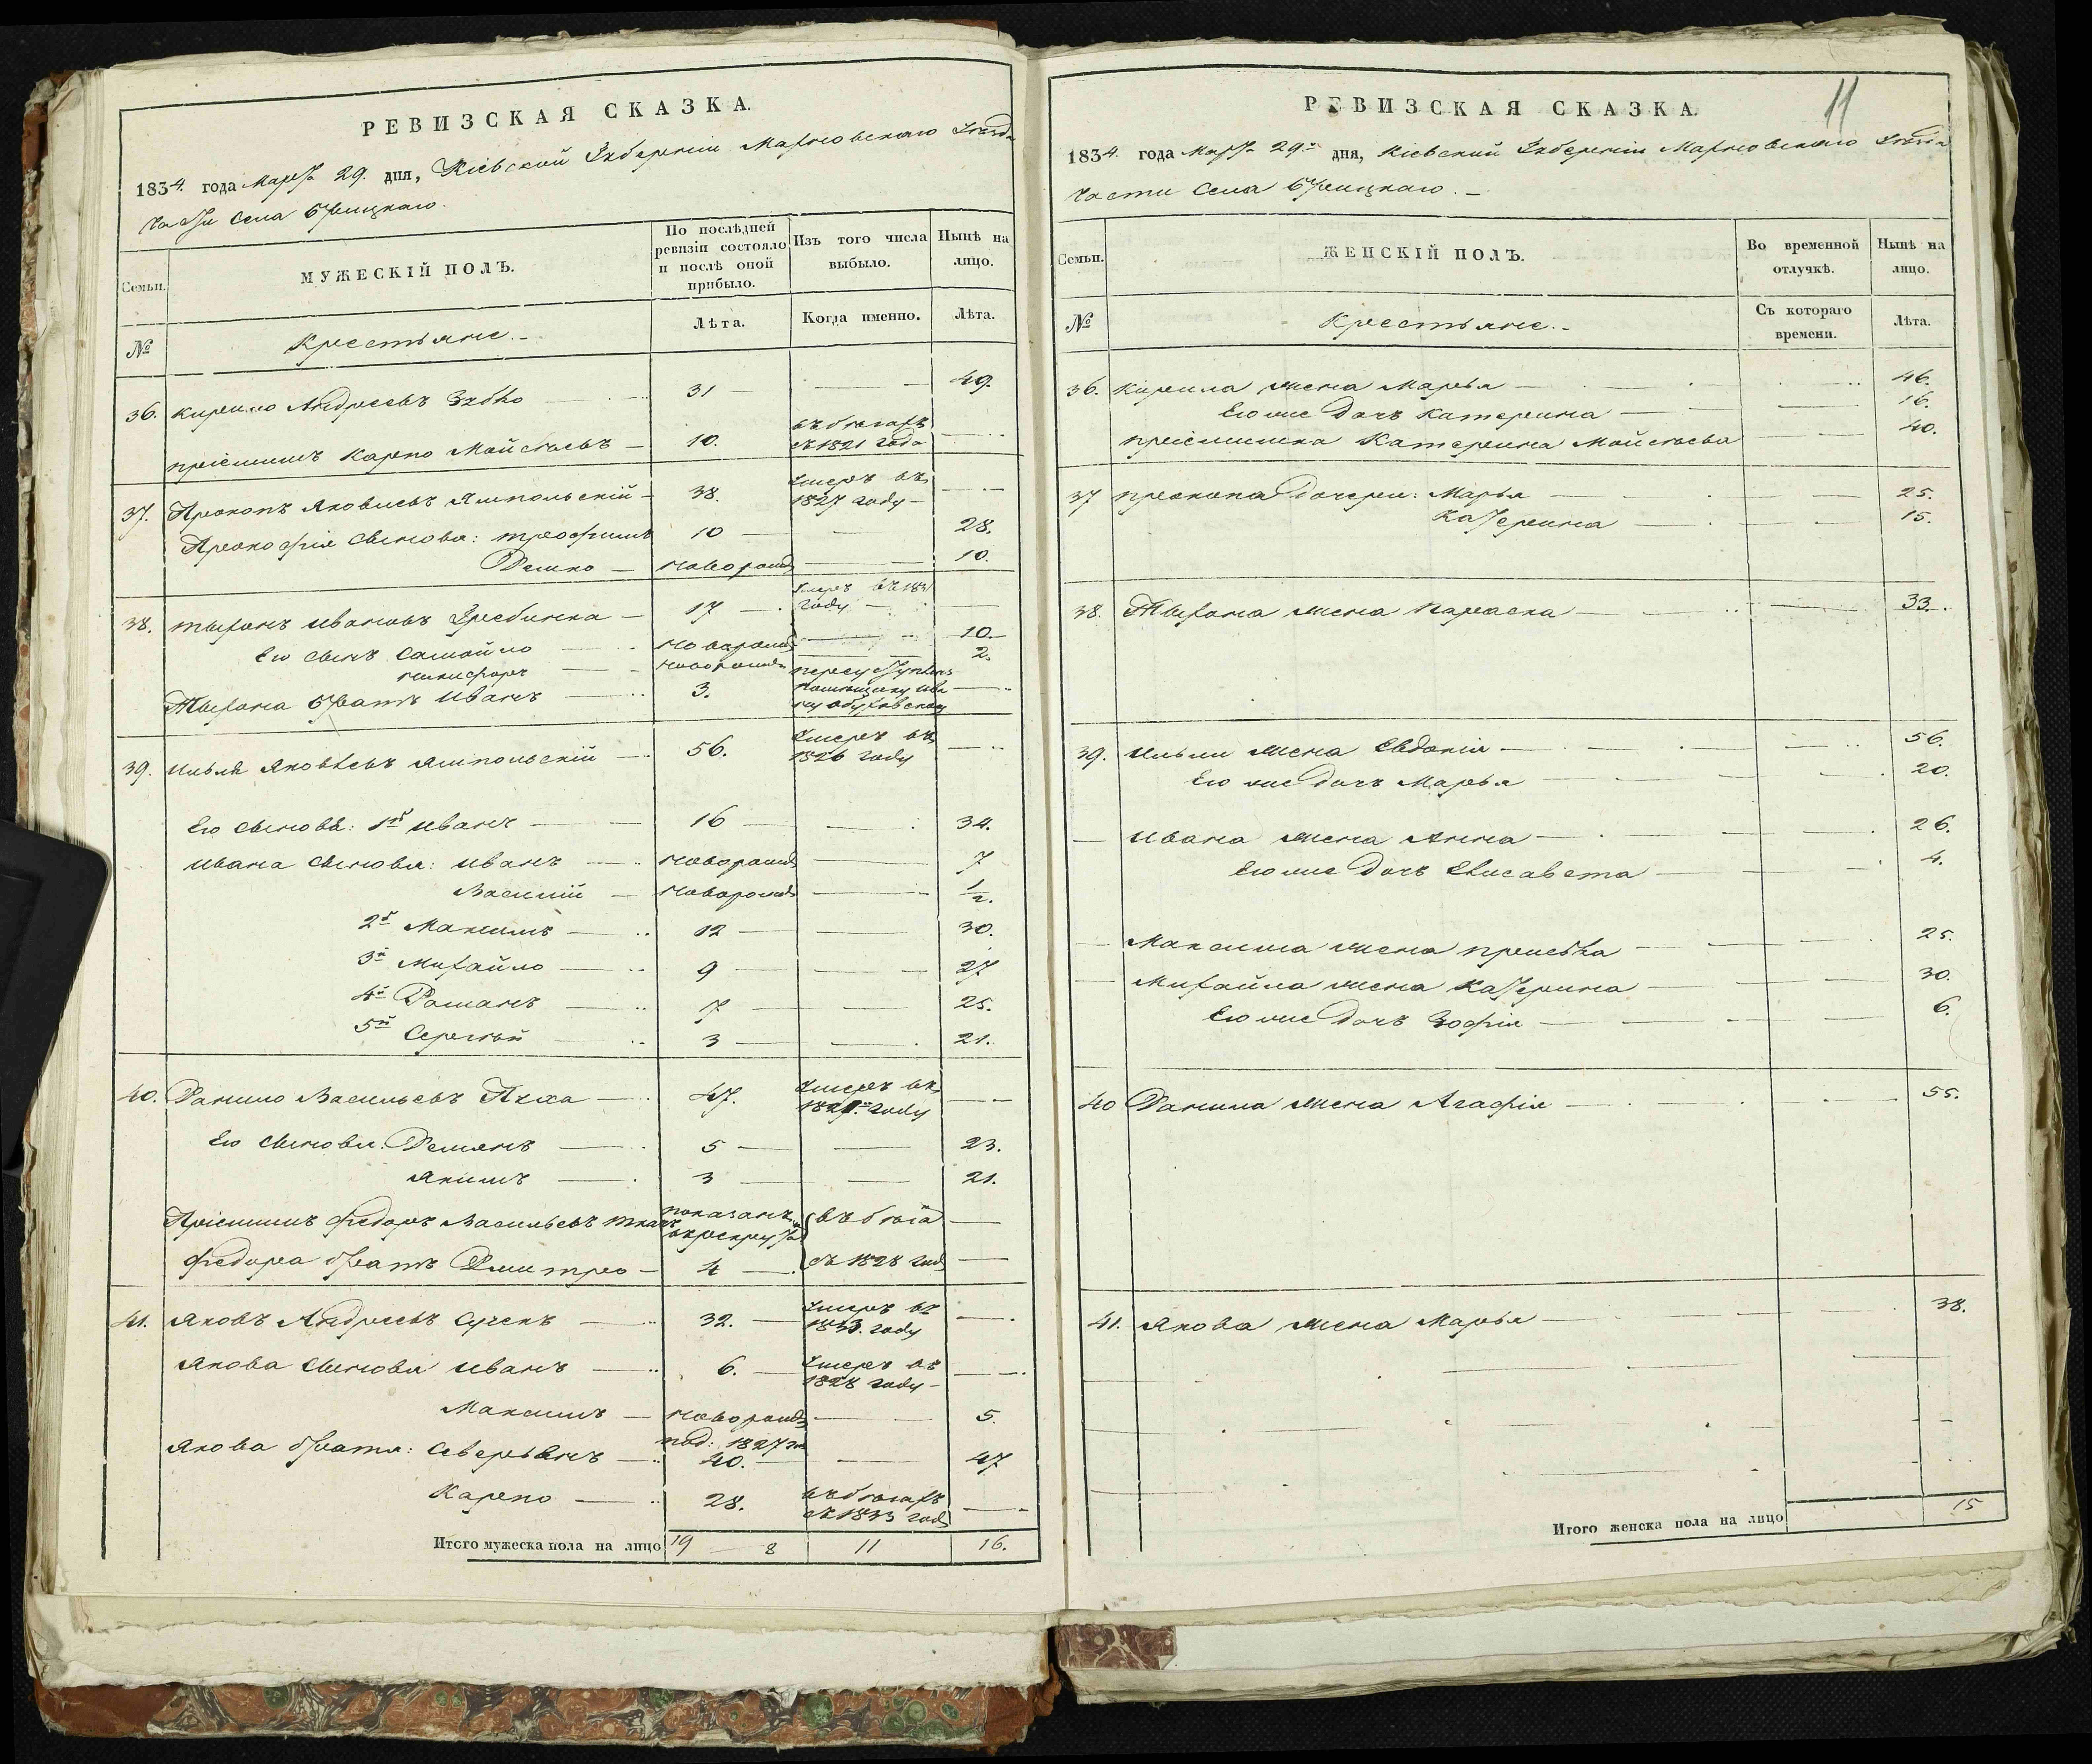 РЕВИЗСКАЯ СКАЗКА.
1834. года Марта 29. дня, Кіевской Губерніи Махновскаго
части Села
Семьи.
МУЖЕСКІЙ ПОЛЪ.
По послѣдней ревизіи состояло и послѣ оной прибыло.
Изъ того числа выбыло.
Нынѣ на лицо.
№
Крестьяне.
Лѣта.
Когда именно.
Лѣта.
36. Кирило Андреевъ 31 — 49.
пріемышъ Карпо Мойсѣевъ — 10. въ бѣгахъ съ 1821 года —
37. Прокопъ Яковлевъ Ямпольскій — 38. Умеръ въ 1827 году —
Прокофія сыновья: Трофимъ 10 — 28.
Демко — новорожд 10.
38. Тыхонъ Ивановъ Гребинка — 17 — Умеръ въ 1831 году —
Его сынъ Самойло новорожд — 10.
Никифоръ новорожд 2.
Тыхона братъ Иванъ — 3. помѣщику
39. Илья Яковлевъ Ямпольскій 56. Умеръ въ 1826 году —
Его сыновья: 1й Иванъ — 16 — 34.
Ивана сыновья: Иванъ — новорожд — 7
Василій — новорожд — 1/2.
2й Максимъ — 12 — 30.
3й Михайло — 9 — 27
4й Романъ 7 — 25.
5й Сергѣй 3 — 21.
40. Данило Васильевъ — 47. Умеръ въ году —
Его сыновья: Демянъ — 5 — 23.
Якимъ — 3 — 21.
Пріемышъ Федоръ Васильевъ показанъ
Федора братъ Дмитро — 4 — съ 1828 года —
41. Яковъ Андреевъ — 32. — Умеръ въ году —
Якова сыновья Иванъ — 6. — Умеръ въ 1828 году —
Максимъ — новорожд — 5.
Якова братья: Северьянъ — 1827 40. — 47
Карпо — 28. въ бѣгахъ съ 1833 года —
Итого мужеска пола на лицо 19 — 8 11 16.
11
РЕВИЗСКАЯ СКАЗКА.
1834. года Марта 29го дня, Кіевской Губерніи Махновскаго
части Села
Семьи.
ЖЕНСКІЙ ПОЛЪ.
Во временной отлучкѣ.
Нынѣ на лицо.
№
Крестьяне.
Съ котораго времени.
Лѣта.
36. Кирила жена Марья — 46.
Его же дочь Катерина — 16.
пріемышка Катерина Мойсѣева — 40.
37 Прокопа дочери: Марья — 25.
Катерина — 15.
38. Тыхона жена Параска — 33.
39. Ильи жена Евдокія — 56.
Его же дочь Марья — 20.
— Ивана жена Анна — 26.
Его же дочь Елисавета — 4.
— Максима жена — 25.
— Михайла жена Катерина — 30.
Его же дочь Зофія — 6.
40 Данила жена Агафія — 55.
41. Якова жена Марья — 38.
Итого женска пола на лицо 15